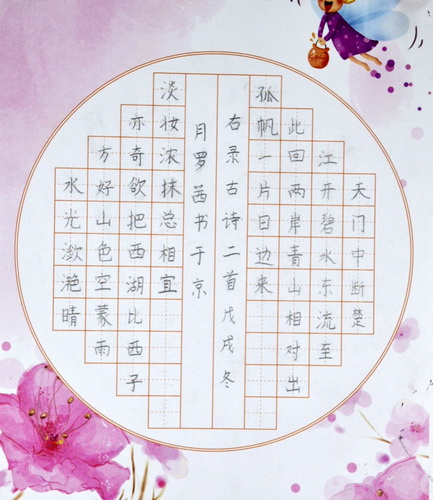 天门中断楚
江开碧水东流至
此回两岸青山相对出
孤帆一片日边来
水光潋滟晴
方好山色空蒙雨
亦奇欲把西湖比西子
淡妆浓抹总相宜
右录古诗二首戊戌冬
月罗茜书于京